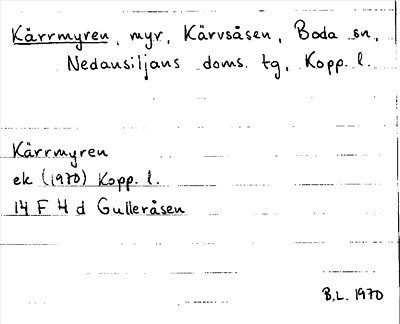 Kärrmyren, myr, Kärvsåsen, Boda sn,
Nedansiljans doms. tg, Kopp. l.
Kärrmyren
ek (1970) Kopp. l.
14 F 4 d Gulleråsen
B.L. 1970